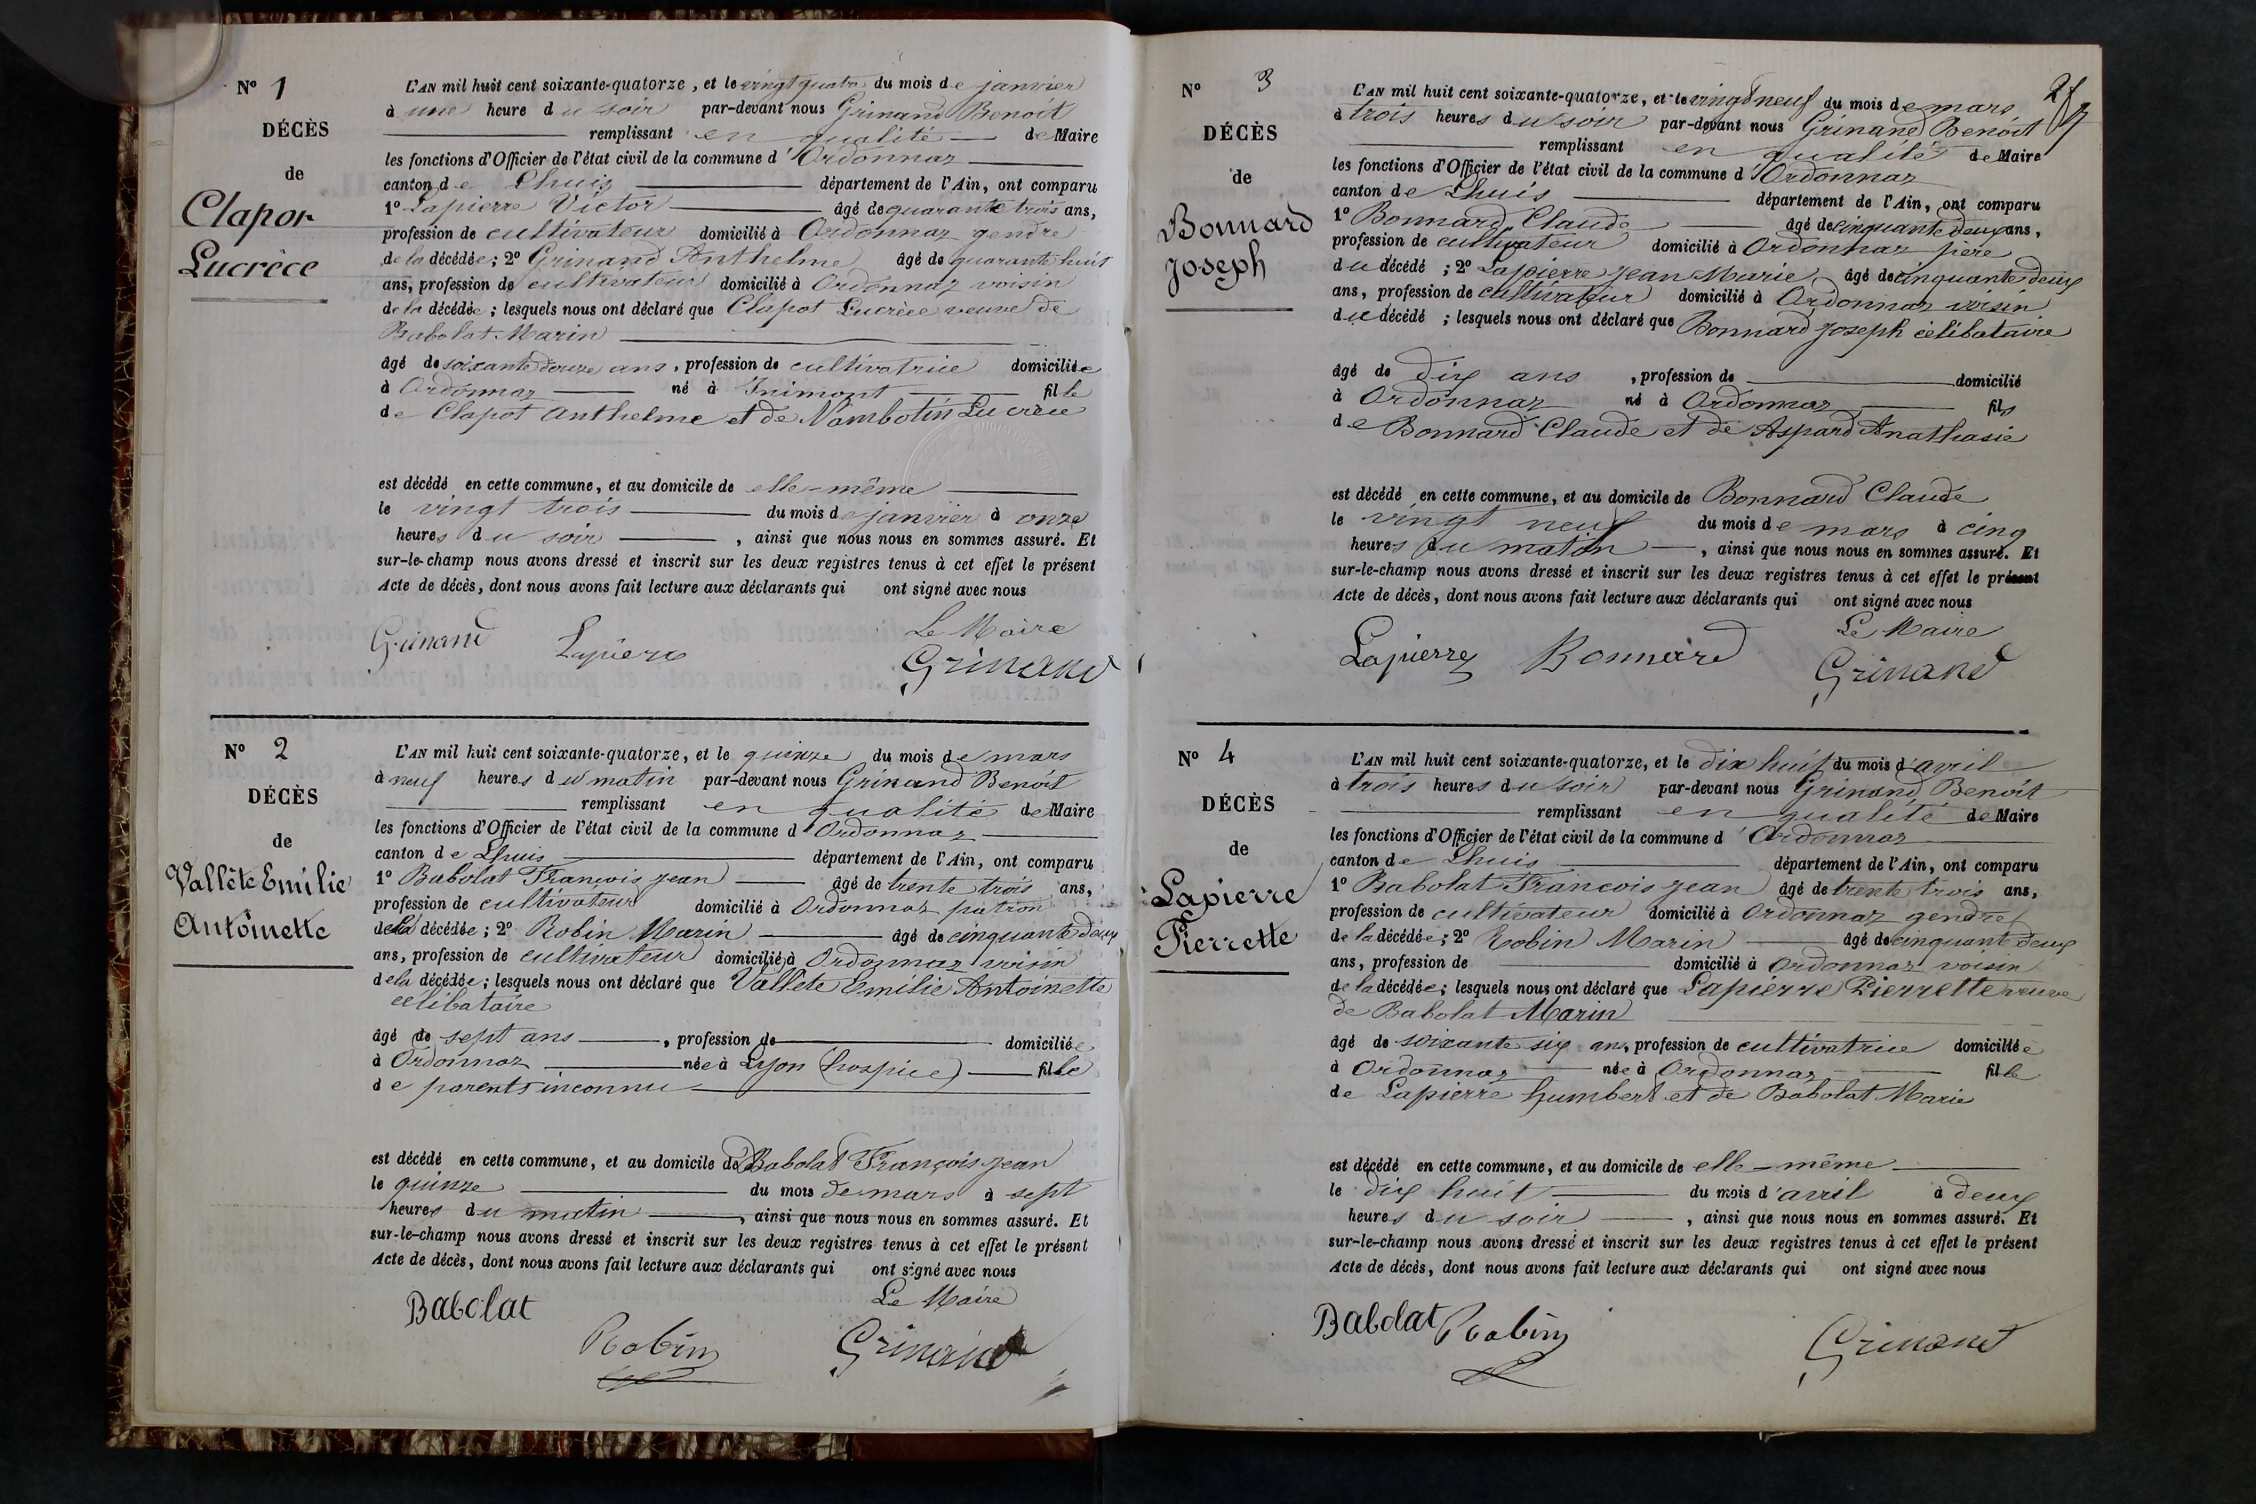 N° 1
DÉCÈS
de
Clapot
Lucrèce
L'AN mil huit cent soixante-quatorze, et le vingt quatre du mois de janvier
à une heure du soir par-devant nous Grinand Benoît
remplissant en qualité de Maire
les fonctions d'Officier de l'état civil de la commune d'Ordonnaz
canton de Lhuis département de l'Ain, ont comparu
1° Lapierre Victor âgé de quarante trois ans,
profession de cultivateur domicilié à Ordonnaz gendre
de la décédée; 2° Grinand Anthelme âgé de quarante huit
ans, profession de cultivateur domicilié à Ordonnaz voisin
de la décédée; lesquels nous ont déclaré que Clapot Lucrèce veuve de
Babolat Marin
âgé de soixante douze ans, profession de cultivatrice domiciliée
à Ordonnaz né à Inimont fille
de Clapot Anthelme et de Nambotin Lucrèce
est décédé en cette commune, et au domicile de elle-même
le vingt trois du mois de janvier à onze
heures du soir, ainsi que nous nous en sommes assuré. Et
sur-le-champ nous avons dressé et inscrit sur les deux registres tenus à cet effet le présent
Acte de décès, dont nous avons fait lecture aux déclarants qui ont signé avec nous
Le Maire
Grinand Lapierre Grinand
N° 2
DÉCÈS
de
Vallête Emilie
Antoinette
L'AN mil huit cent soixante-quatorze, et le quinze du mois de mars
à neuf heures du matin par-devant nous Grinand Benoît
remplissant en qualité de Maire
les fonctions d'Officier de l'état civil de la commune d'Ordonnaz
canton de Lhuis département de l'Ain, ont comparu
1° Babolat François Jean âgé de trente trois ans,
profession de cultivateur domicilié à Ordonnaz patron
de la décédée; 2° Robin Marin âgé de cinquante deux
ans, profession de cultivateur domicilié à Ordonnaz voisin
de la décédée; lesquels nous ont déclaré que Vallete Emilie Antoinette
célibataire
âgé de sept ans, profession de domiciliée
à Ordonnaz née à Lyon (hospice) fille
de parents inconnu
est décédé en cette commune, et au domicile de Babolat François Jean
le quinze du mois de mars à sept
heures du matin, ainsi que nous nous en sommes assuré. Et
sur-le-champ nous avons dressé et inscrit sur les deux registres tenus à cet effet le présent
Acte de décès, dont nous avons fait lecture aux déclarants qui ont signé avec nous
Le Maire
Babolat Robin Grinand
N° 3
DÉCÈS
de
Bonnard
Joseph
L'AN mil huit cent soixante-quatorze, et le vingt neuf du mois de mars
à trois heures du soir par-devant nous Grinand Benoît
remplissant en qualité de Maire
les fonctions d'Officier de l'état civil de la commune d'Ordonnaz
canton de Lhuis département de l'Ain, ont comparu
1° Bonnard Claude âgé de cinquante deux ans,
profession de cultivateur domicilié à Ordonnaz père
du décédé; 2° Lapierre Jean Marie âgé de cinquante deux
ans, profession de cultivateur domicilié à Ordonnaz voisin
du décédé; lesquels nous ont déclaré que Bonnard Joseph célibataire
âgé de dix ans, profession de domicilié
à Ordonnaz né à Ordonnaz fils
de Bonnard Claude et de Aspard Anathasie
est décédé en cette commune, et au domicile de Bonnard Claude
le vingt neuf du mois de mars à cinq
heures du matin, ainsi que nous nous en sommes assuré. Et
sur-le-champ nous avons dressé et inscrit sur les deux registres tenus à cet effet le présent
Acte de décès, dont nous avons fait lecture aux déclarants qui ont signé avec nous
Le Maire
Lapierre Bonnard Grinand
N° 4
DÉCÈS
de
Lapierre
Pierrette
L'AN mil huit cent soixante-quatorze, et le dix huit du mois d'avril
à trois heures du soir par-devant nous Grinand Benoît
remplissant en qualité de Maire
les fonctions d'Officier de l'état civil de la commune d'Ordonnaz
canton de Lhuis département de l'Ain, ont comparu
1° Babolat François Jean âgé de trente trois ans,
profession de cultivateur domicilié à Ordonnaz gendre
de la décédée; 2° Robin Marin âgé de cinquante deux
ans, profession de domicilié à Ordonnaz voisin
de la décédée; lesquels nous ont déclaré que Lapierre Pierrette veuve
de Babolat Marin
âgé de soixante six ans, profession de cultivatrice domiciliée
à Ordonnaz née à Ordonnaz fille
de Lapierre humbert et de Babolat Marie
est décédé en cette commune, et au domicile de elle-même
le dix huit du mois d'avril à deux
heures du soir, ainsi que nous nous en sommes assuré. Et
sur-le-champ nous avons dressé et inscrit sur les deux registres tenus à cet effet le présent
Acte de décès, dont nous avons fait lecture aux déclarants qui ont signé avec nous
Babolat Robin Grinand